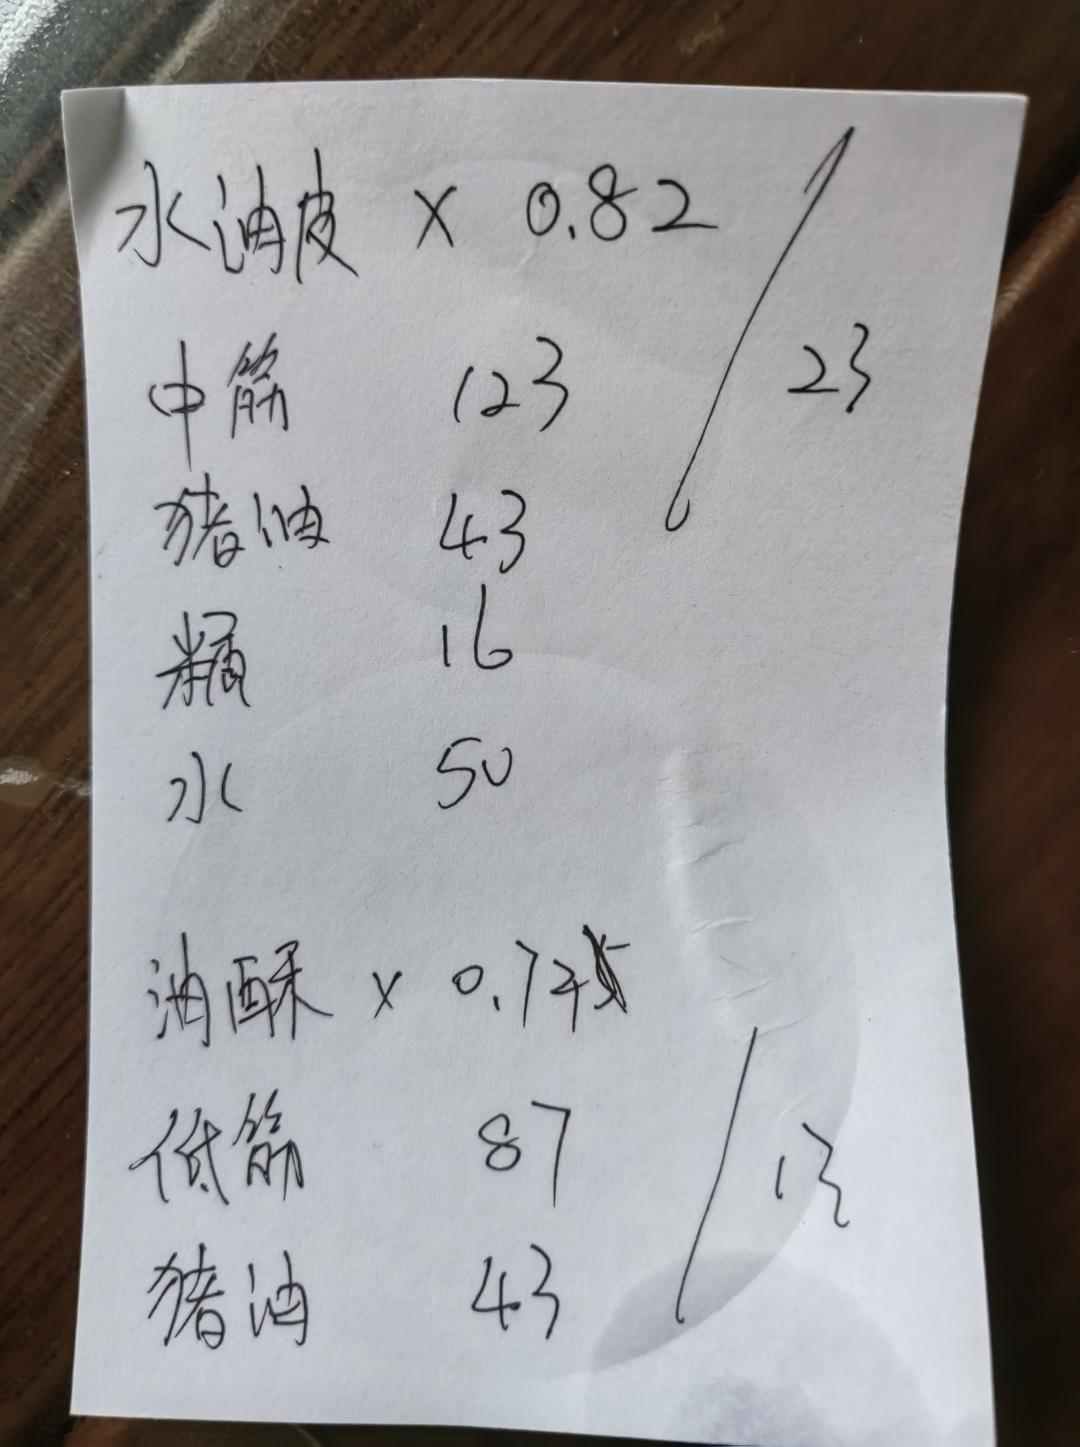 水油皮 × 0.82
中筋 123
23
猪油 43
糖 16
水 50
油酥 × 0.72
低筋 87
13
猪油 43